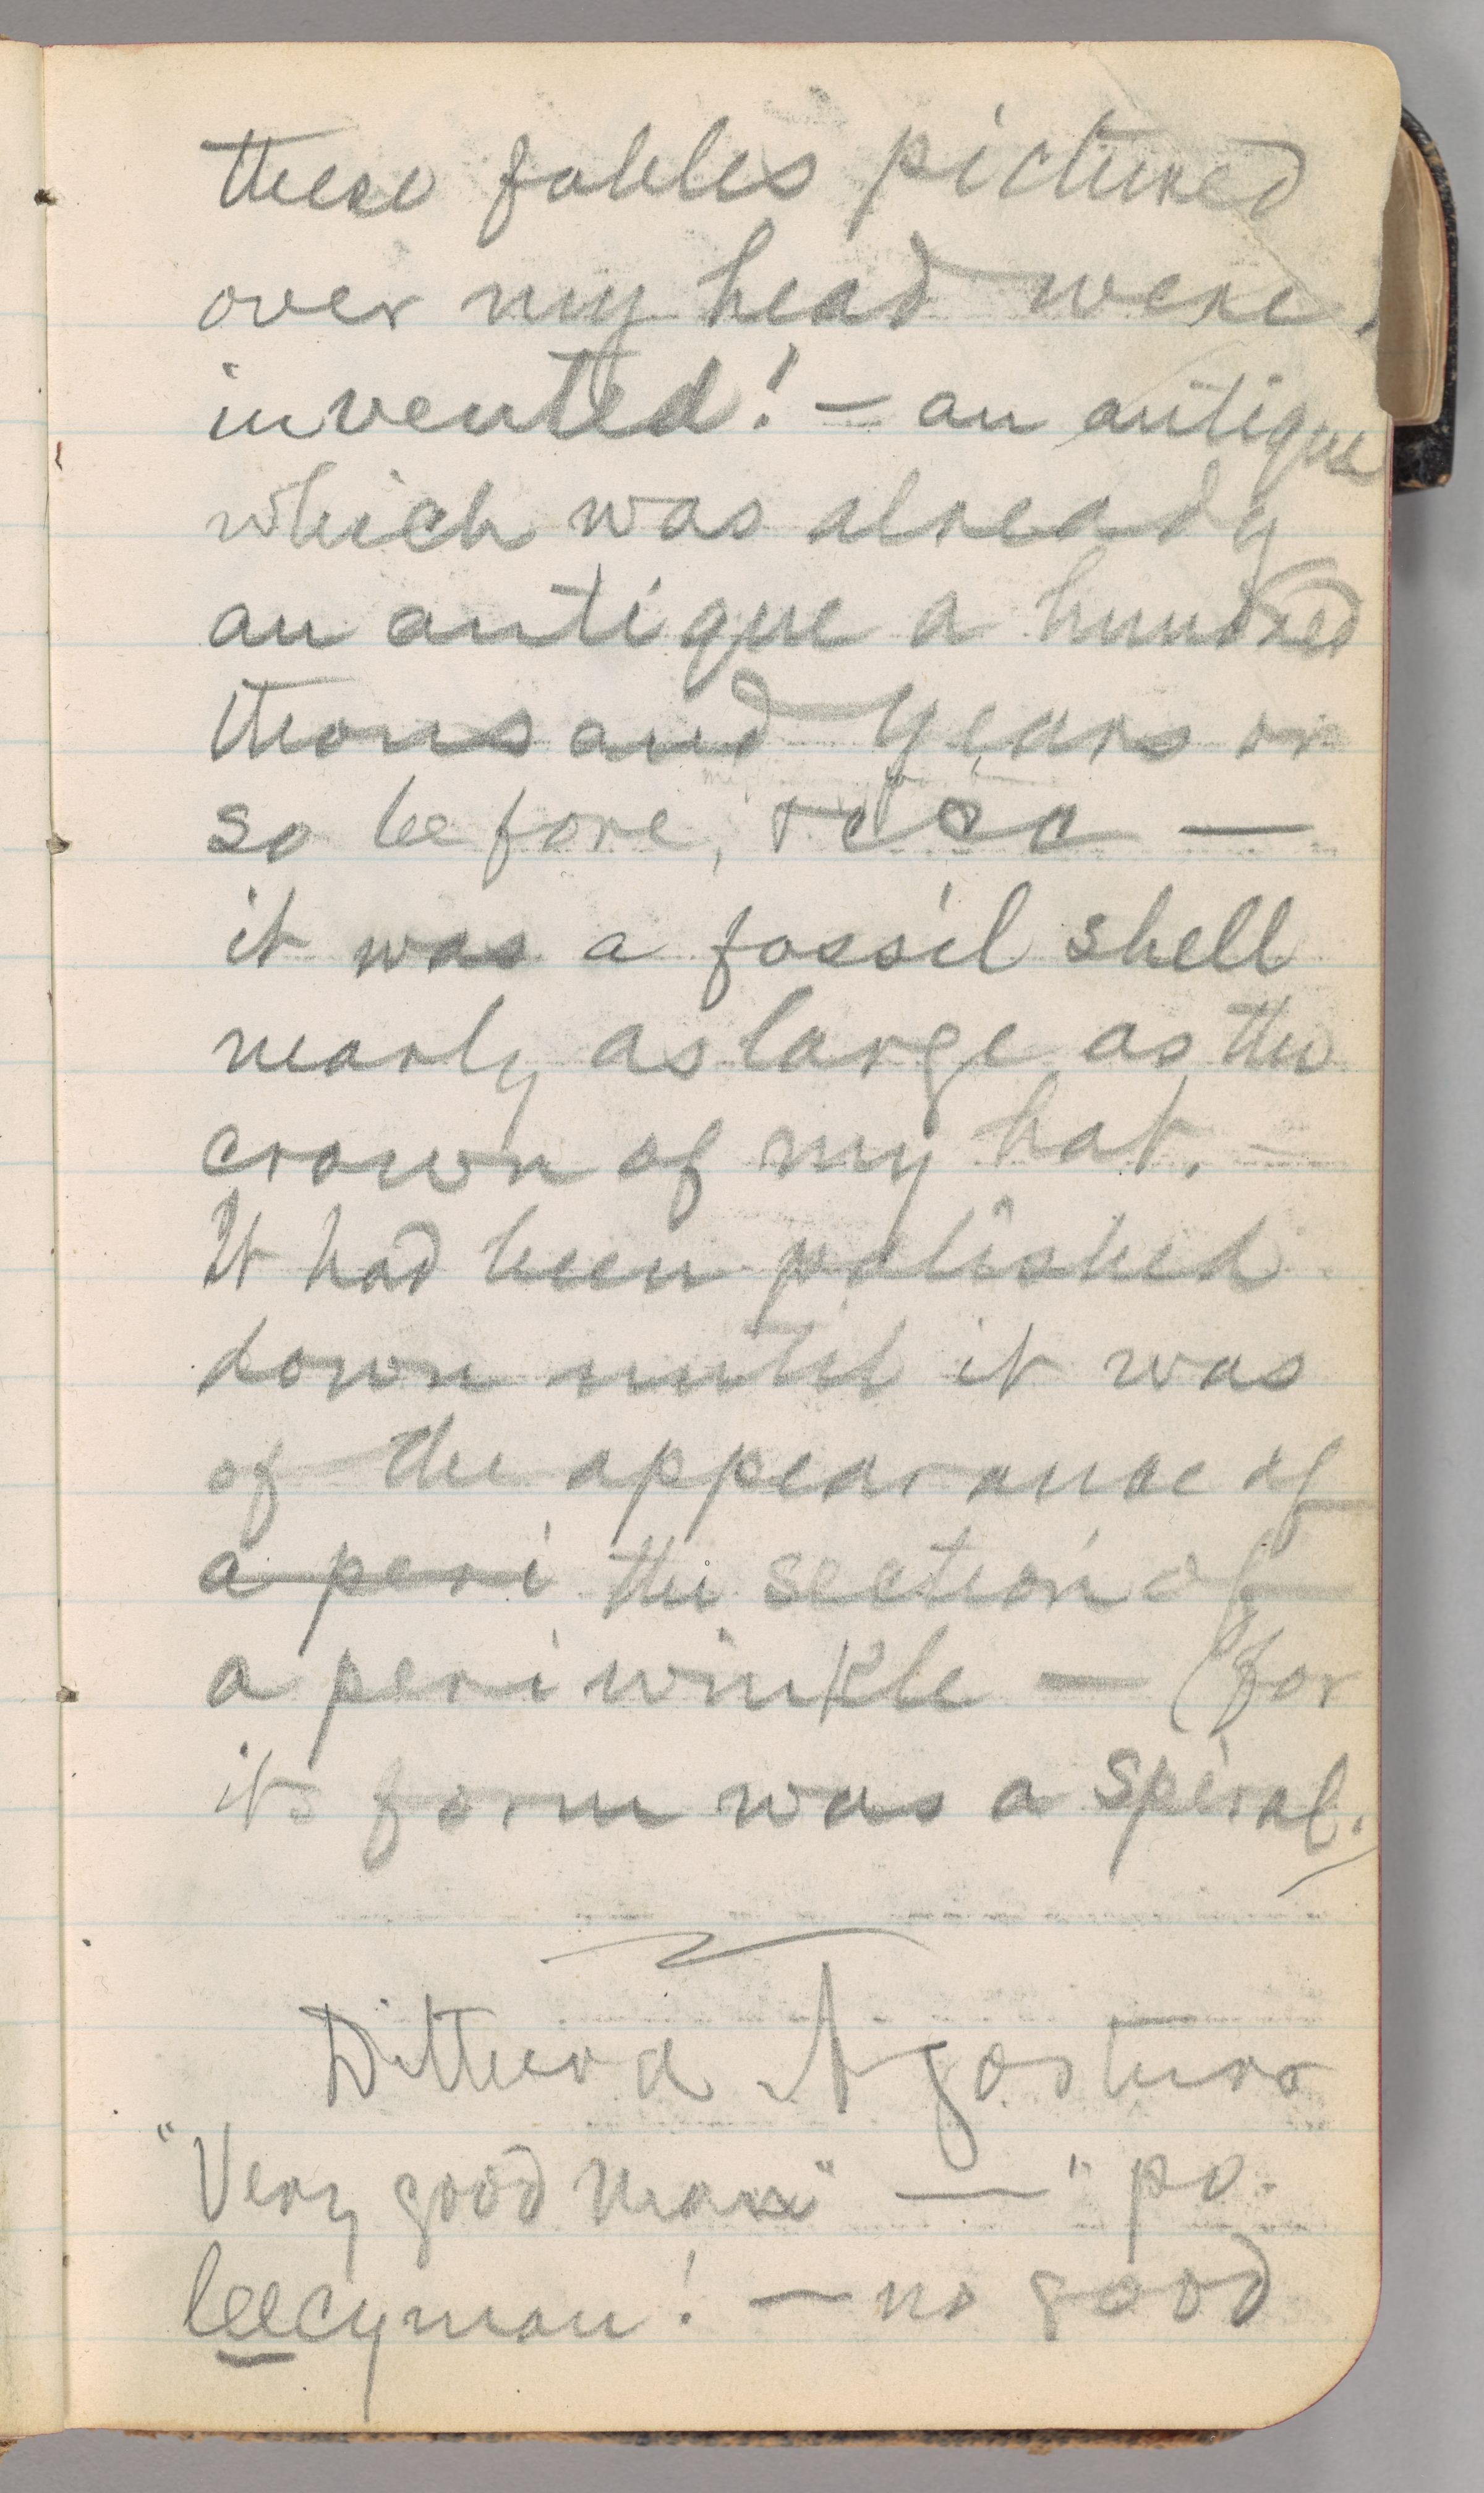 these fables pictured
over my head were
invented! — an antique
which was already
an antique a hundred
thousand years or
so before, &c &c —
it was a fossil shell
nearly as large as the
crown of my hat. —
It had been polished
down until it was
of the appearance of
a peri the section of
a periwinkle — (for
its form was a spiral.)
"Very good man" — "po-
leecyman! — no good